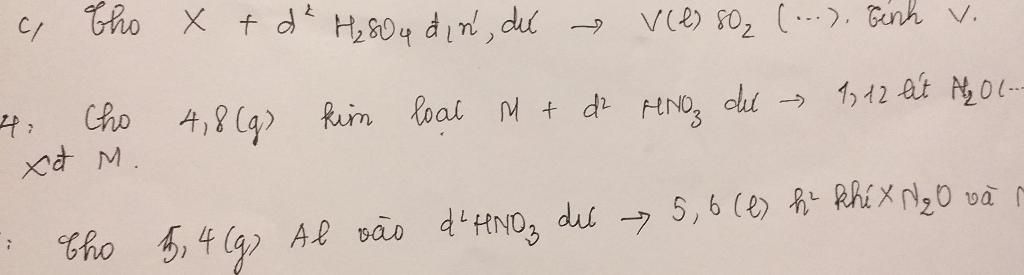 c, Cho X + d² H₂SO₄ đ,n', dư → V(l) SO₂ (...). Tính V.
4, Cho 4,8(g) kim loại M + d² HNO₃ dư → 1,12 lít N₂O(...
xđ M.
: Cho 5,4(g) Al vào d² HNO₃ dư → 5,6(l) h² khí X N₂O và